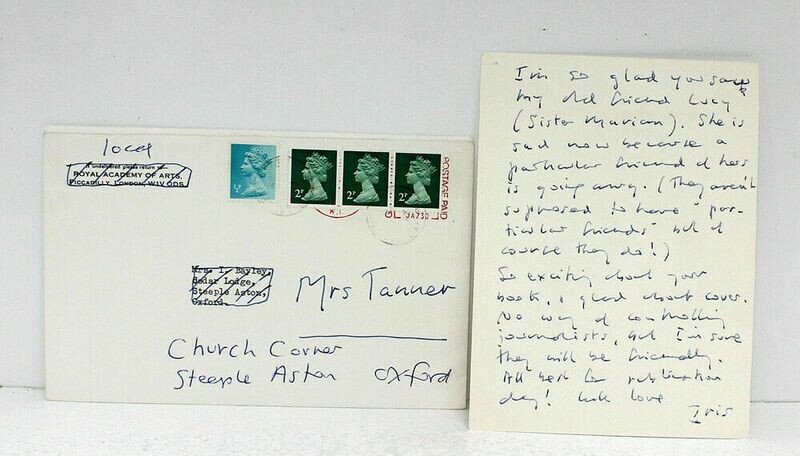 local
If undelivered please return to
ROYAL ACADEMY OF ARTS,
PICCADILLY, LONDON, W1V 0DS.
½P
2P
2P
2P
POSTAGE PAID
Mrs. I. Bayley,
Cedar Lodge,
Steeple Aston,
Oxford.
Mrs Tanner
Church Corner
Steeple Aston Oxford
I'm so glad you saw
my old friend Lucy
(Sister Marian). She is
sad now because a
particular friend of hers
is going away. (They aren't
supposed to have 'par-
ticular friends' but of
course they do!)
So exciting about your
book, & glad about cover.
No way of controlling
journalists, but I'm sure
they will be friendly.
All best for publication
day! love
Iris